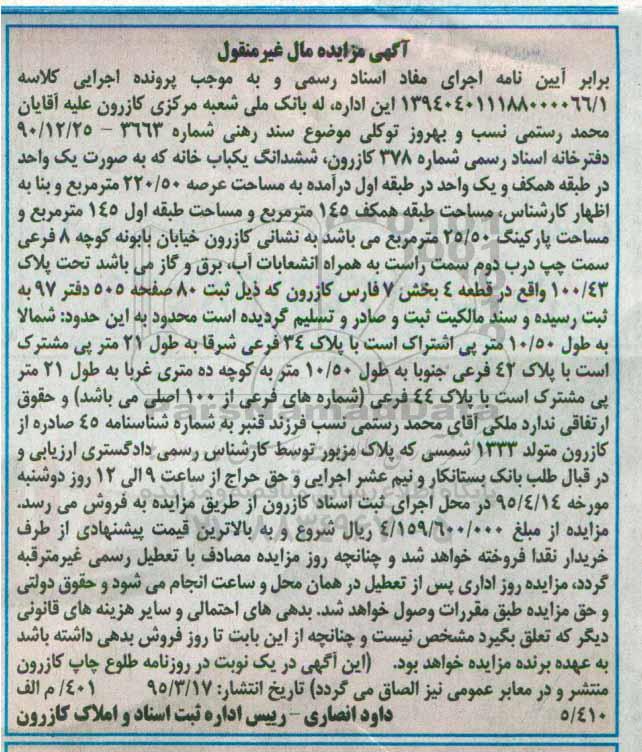 آگهی مزایده مال غیرمنقول
برابر آیین نامه اجرای مفاد اسناد رسمی و به موجب پرونده اجرایی کلاسه
۱۳۹۴۰۴۰۱۱۱۸۸۰۰۰۰۶۶/۱ این اداره، له بانک ملی شعبه مرکزی کازرون علیه آقایان
محمد رستمی نسب و بهروز توکلی موضوع سند رهنی شماره ۳۶۶۳ - ۹۰/۱۲/۲۵
دفترخانه اسناد رسمی شماره ۳۷۸ کازرون، ششدانگ یکباب خانه که به صورت یک واحد
در طبقه همکف و یک واحد در طبقه اول درآمده به مساحت عرصه ۲۲۰/۵۰ مترمربع و بنا به
اظهار کارشناس، مساحت طبقه همکف ۱۴۵ مترمربع و مساحت طبقه اول ۱۴۵ مترمربع و
مساحت پارکینگ ۲۵/۵۰ مترمربع می باشد به نشانی کازرون خیابان بابونه کوچه ۸ فرعی
سمت چپ درب دوم سمت راست به همراه انشعابات آب، برق و گاز می باشد تحت پلاک
۱۰۰/۴۳ واقع در قطعه ۴ بخش ۷ فارس کازرون که ذیل ثبت ۸۰ صفحه ۵۰۵ دفتر ۹۷ به
ثبت رسیده و سند مالکیت ثبت و صادر و تسلیم گردیده است محدود به این حدود: شمالا
به طول ۱۰/۵۰ متر پی اشتراک است با پلاک ۳۴ فرعی شرقا به طول ۲۱ متر پی مشترک
است با پلاک ۴۲ فرعی جنوبا به طول ۱۰/۵۰ متر به کوچه ده متری غربا به طول ۲۱ متر
پی مشترک است با پلاک ۴۴ فرعی (شماره های فرعی از ۱۰۰ اصلی می باشد) و حقوق
ارتفاقی ندارد ملکی آقای محمد رستمی نسب فرزند قنبر به شماره شناسنامه ۴۵ صادره از
کازرون متولد ۱۳۳۳ شمسی که پلاک مزبور توسط کارشناس رسمی دادگستری ارزیابی و
در قبال طلب بانک بستانکار و نیم عشر اجرایی و حق حراج از ساعت ۹ الی ۱۲ روز دوشنبه
مورخه ۹۵/۴/۱۴ در محل اجرای ثبت اسناد کازرون از طریق مزایده به فروش می رسد.
مزایده از مبلغ ۴/۱۵۹/۶۰۰/۰۰۰ ریال شروع و به بالاترین قیمت پیشنهادی از طرف
خریدار نقدا فروخته خواهد شد و چنانچه روز مزایده مصادف با تعطیل رسمی غیرمترقبه
گردد، مزایده روز اداری پس از تعطیل در همان محل و ساعت انجام می شود و حقوق دولتی
و حق مزایده طبق مقررات وصول خواهد شد. بدهی های احتمالی و سایر هزینه های قانونی
دیگر که تعلق بگیرد مشخص نیست و چنانچه از این بابت تا روز فروش بدهی داشته باشد
به عهده برنده مزایده خواهد بود. (این آگهی در یک نوبت در روزنامه طلوع چاپ کازرون
منتشر و در معابر عمومی نیز الصاق می گردد) تاریخ انتشار: ۹۵/۳/۱۷ ۴۰۱/ م الف
۵/۴۱۰ داود انصاری - رییس اداره ثبت اسناد و املاک کازرون
ParsNamadData